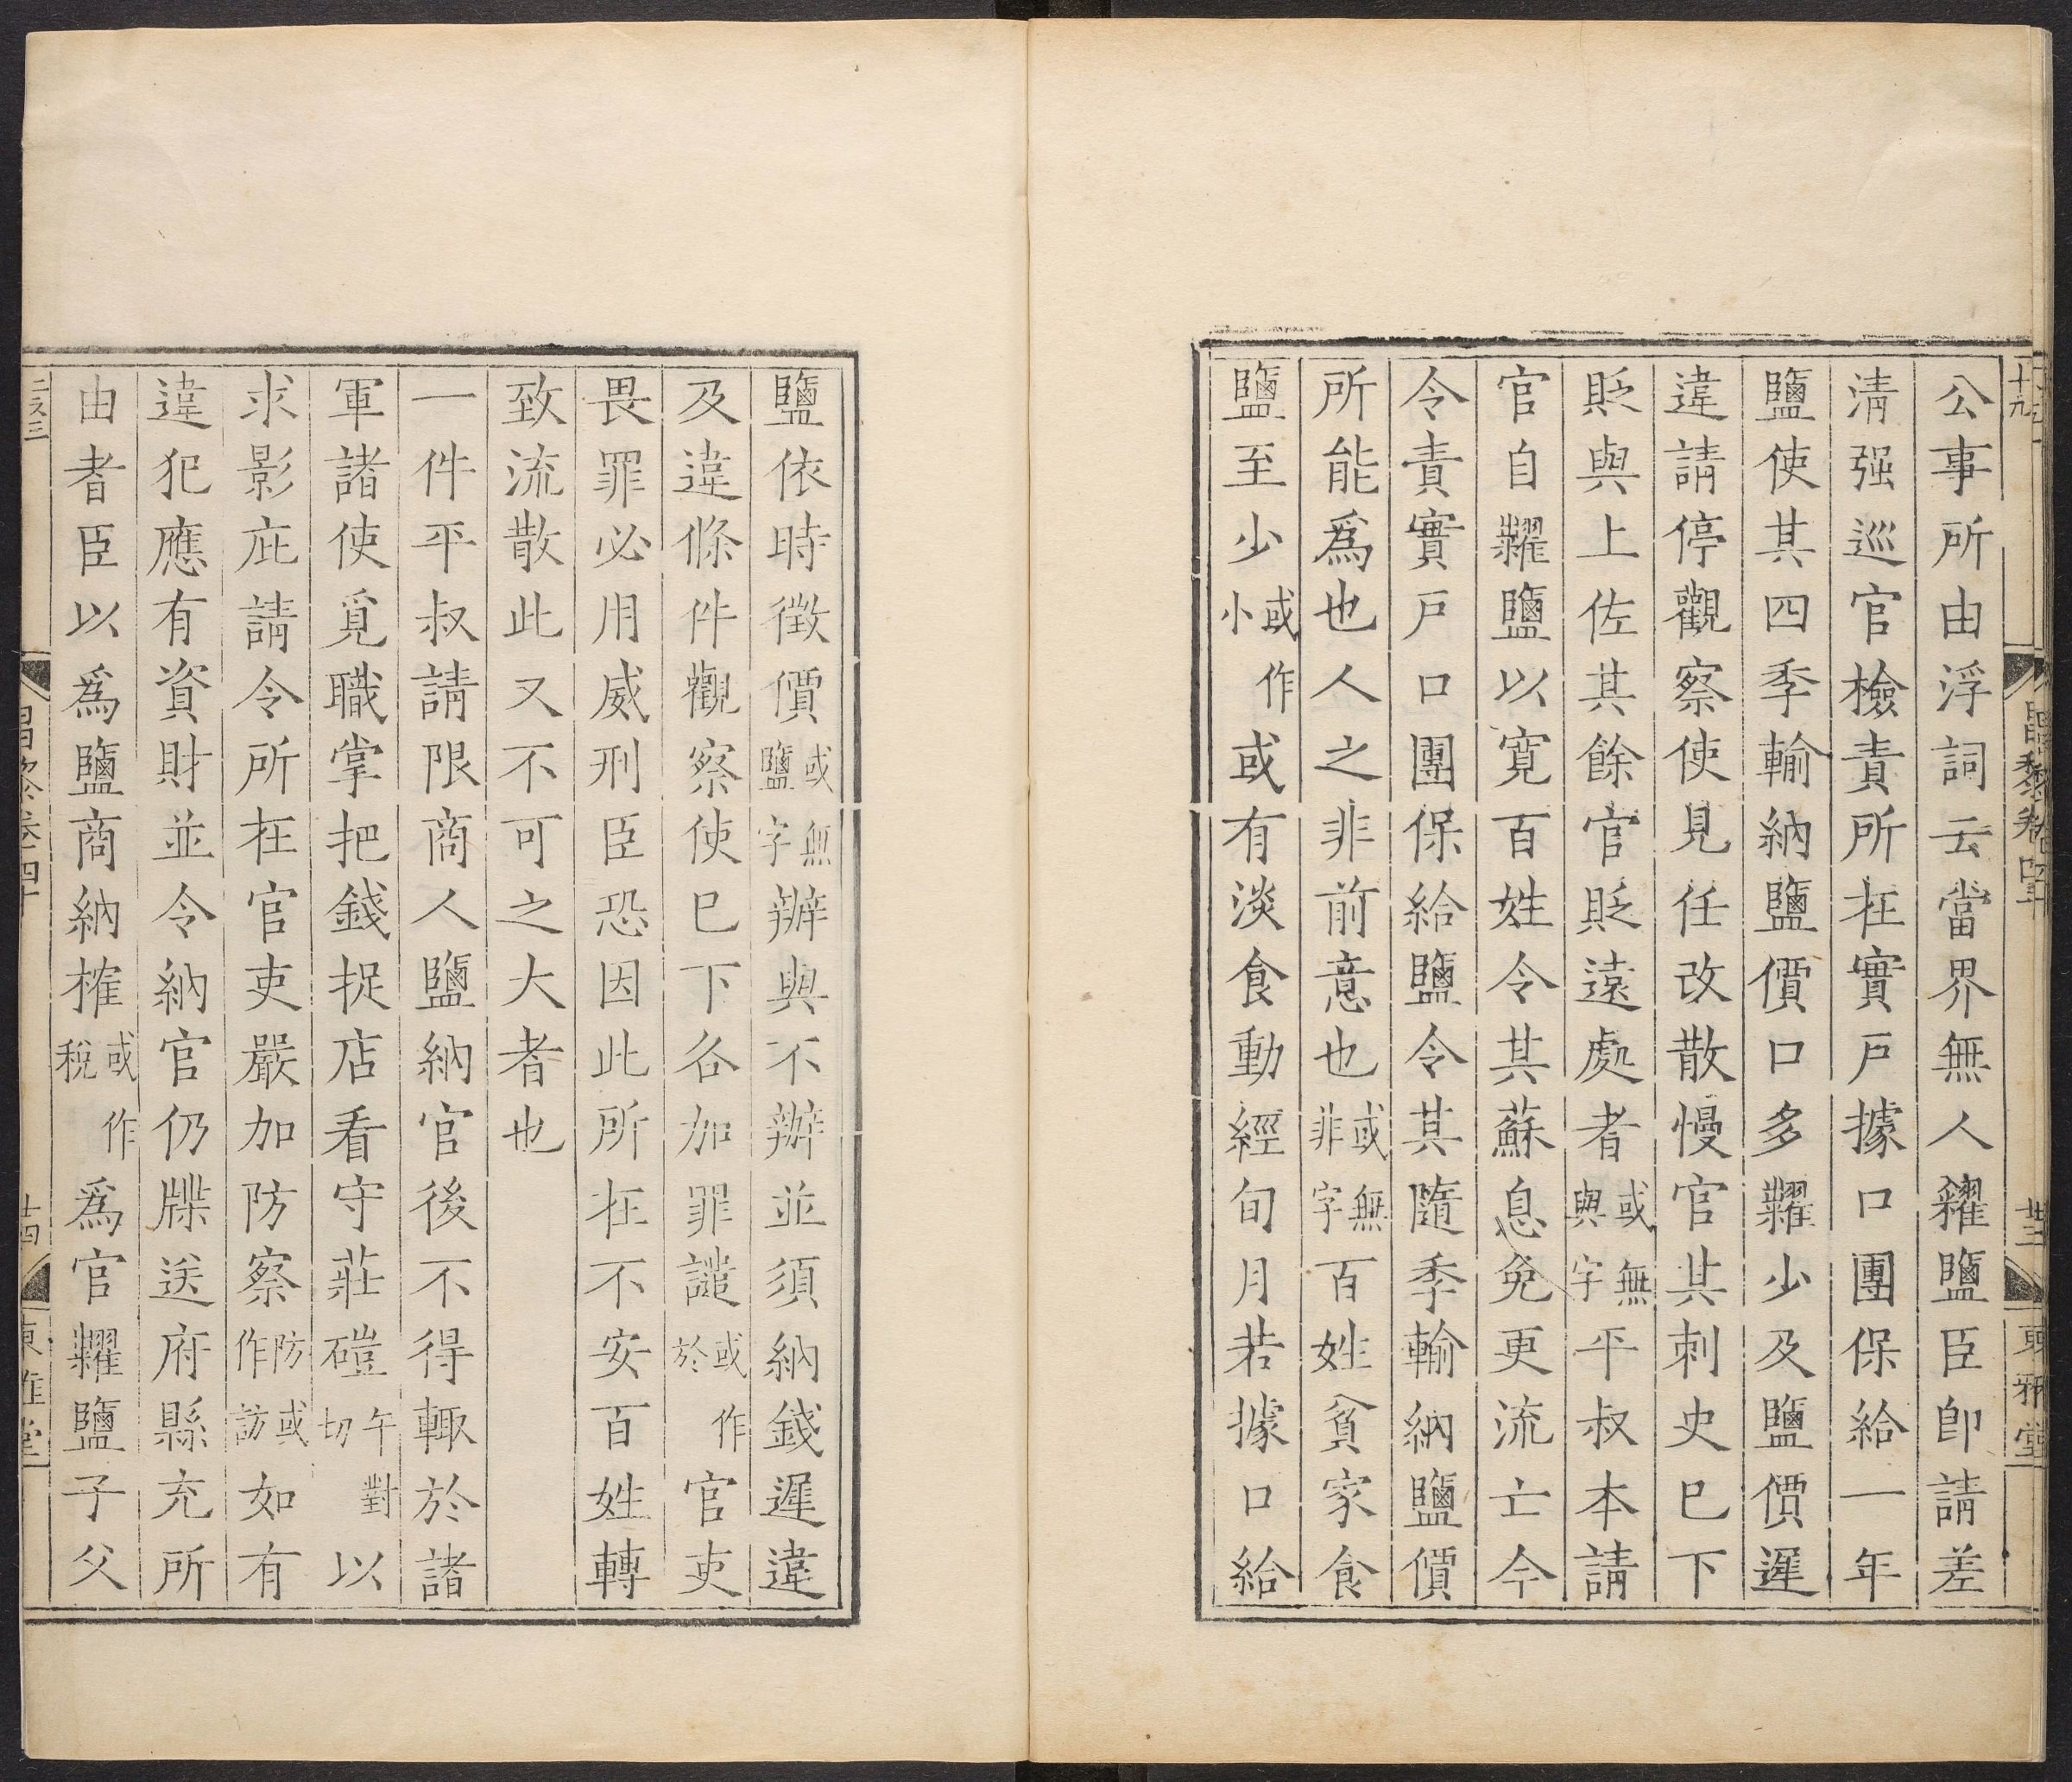 公事所由浮詞云當界無人糴鹽臣即請差
清强巡官檢責所在實戶據口團保給一年
鹽使其四季輸納鹽價口多糶少及鹽價遲
違請停觀察使見任改散慢官其刺史已下
貶與上佐其餘官貶遠處者或無與字平叔本請
官自糶鹽以寬百姓令其蘇息免更流亡今
令責實戶口團保給鹽令其隨季輸納鹽價
所能爲也人之非前意也或無非字百姓貧家食
鹽至少或作小或有淡食動經旬月若據口給
鹽依時徵價或無鹽字辦與不辦並須納錢遲違
及違條件觀察使已下各加罪譴或作於官吏
畏罪必用威刑臣恐因此所在不安百姓轉
致流散此又不可之大者也
一件平叔請限商人鹽納官後不得輒於諸
軍諸使覓職掌把錢捉店看守莊磑午對切以
求影庇請令所在官吏嚴加防察防或作訪如有
違犯應有資財並令納官仍牒送府縣充所
由者臣以爲鹽商納榷或作稅爲官糶鹽子父
昌黎卷四十
廿四
東雅堂